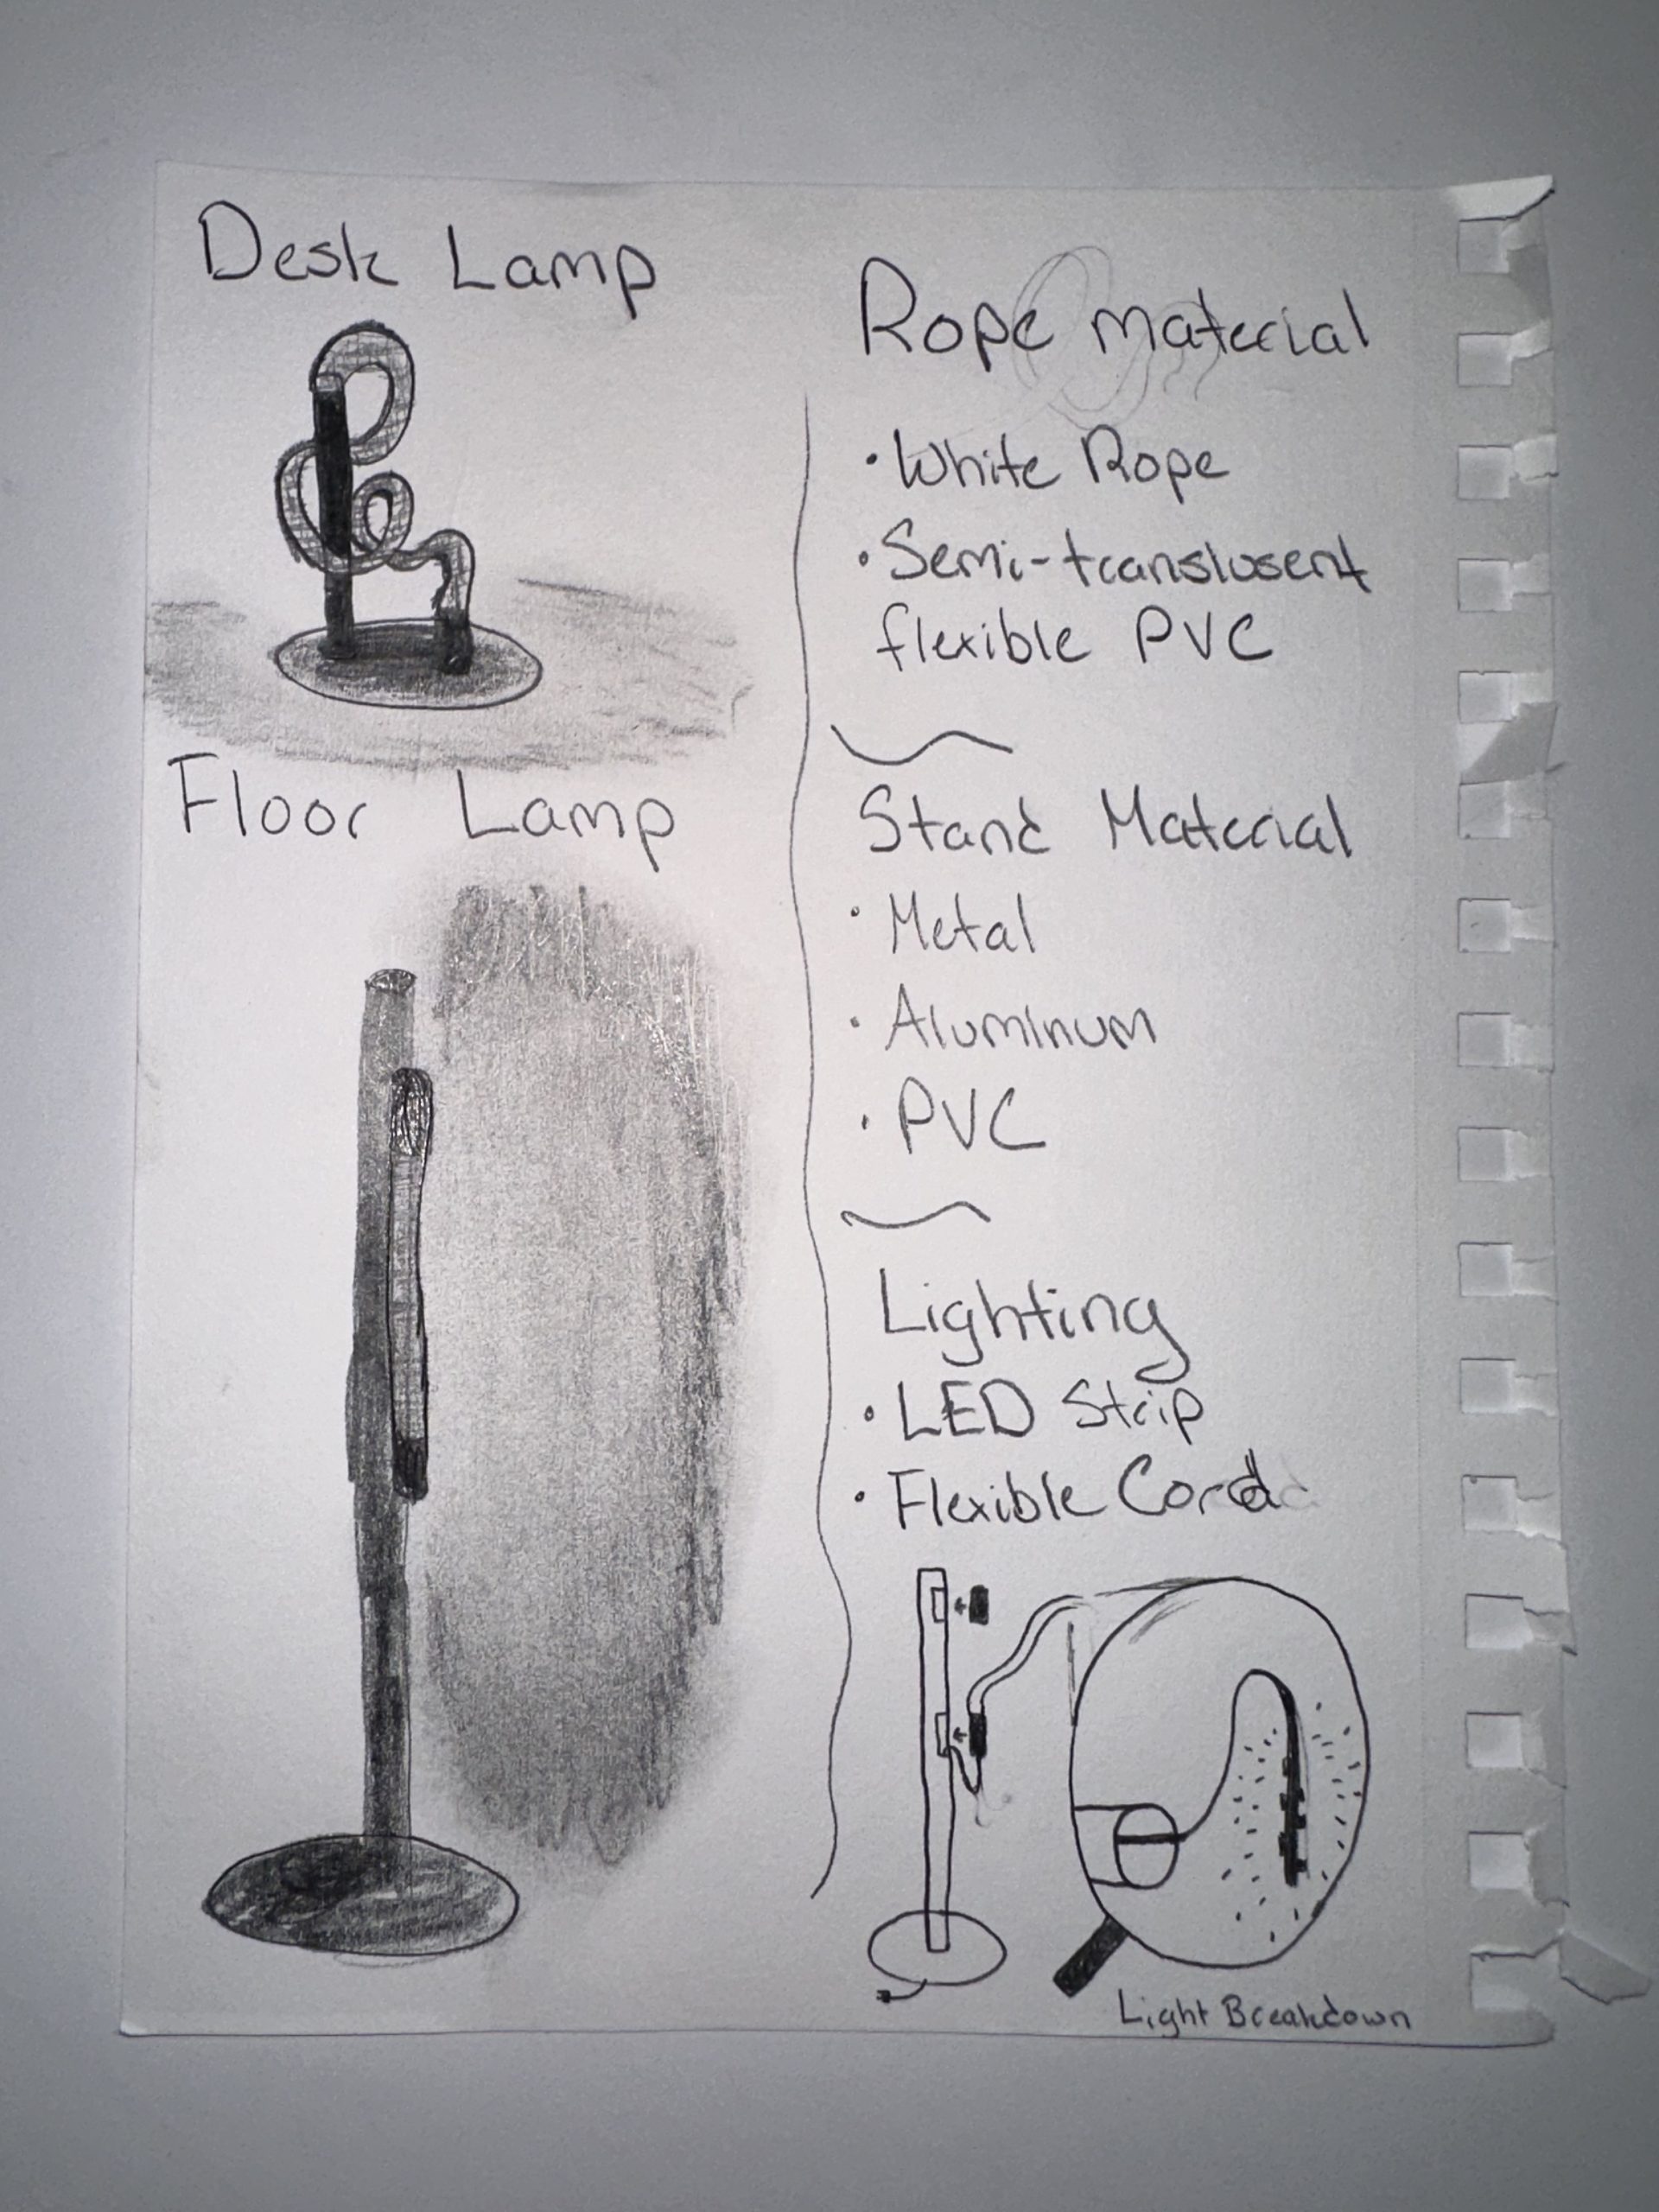 Desk Lamp
Floor Lamp
Rope Material
• White Rope
• Semi-translusent
flexible PVC
Stand Material
• Metal
• Aluminum
• PVC
Lighting
• LED Strip
• Flexible Cord
Light Breakdown